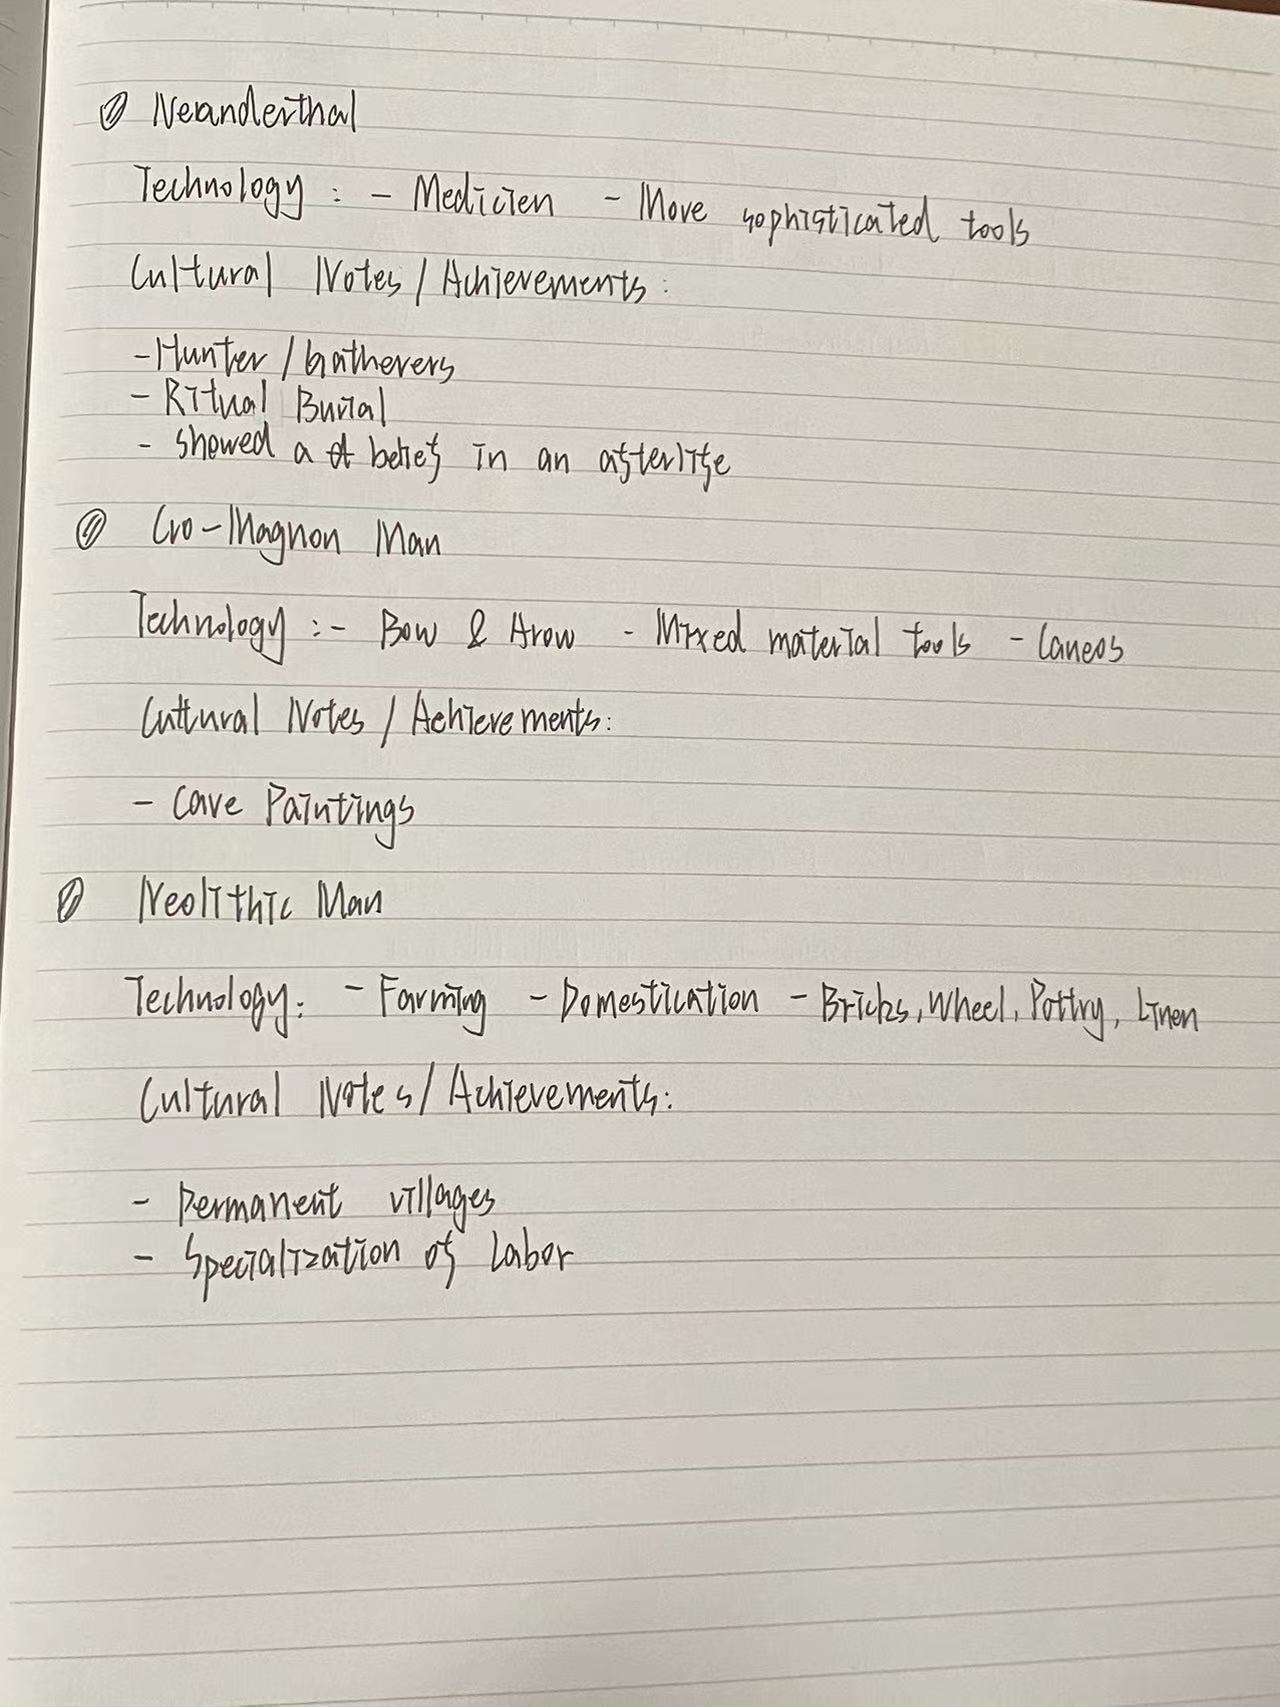 Neanderthal
Technology : - Medicien - More sophisticated tools
Cultural Notes / Achievements :
- Hunter / Gatherers
- Ritual Burial
- showed a belief in an afterlife
Cro-Magnon Man
Technology : - Bow & Arow - Mixed material tools - Caneos
Cultural Notes / Achievements :
- Cave Paintings
Neolithic Man
Technology : - Farming - Domestication - Bricks, Wheel, Pottry, Linen
Cultural Notes / Achievements :
- Permanent villages
- Specialization of Labor